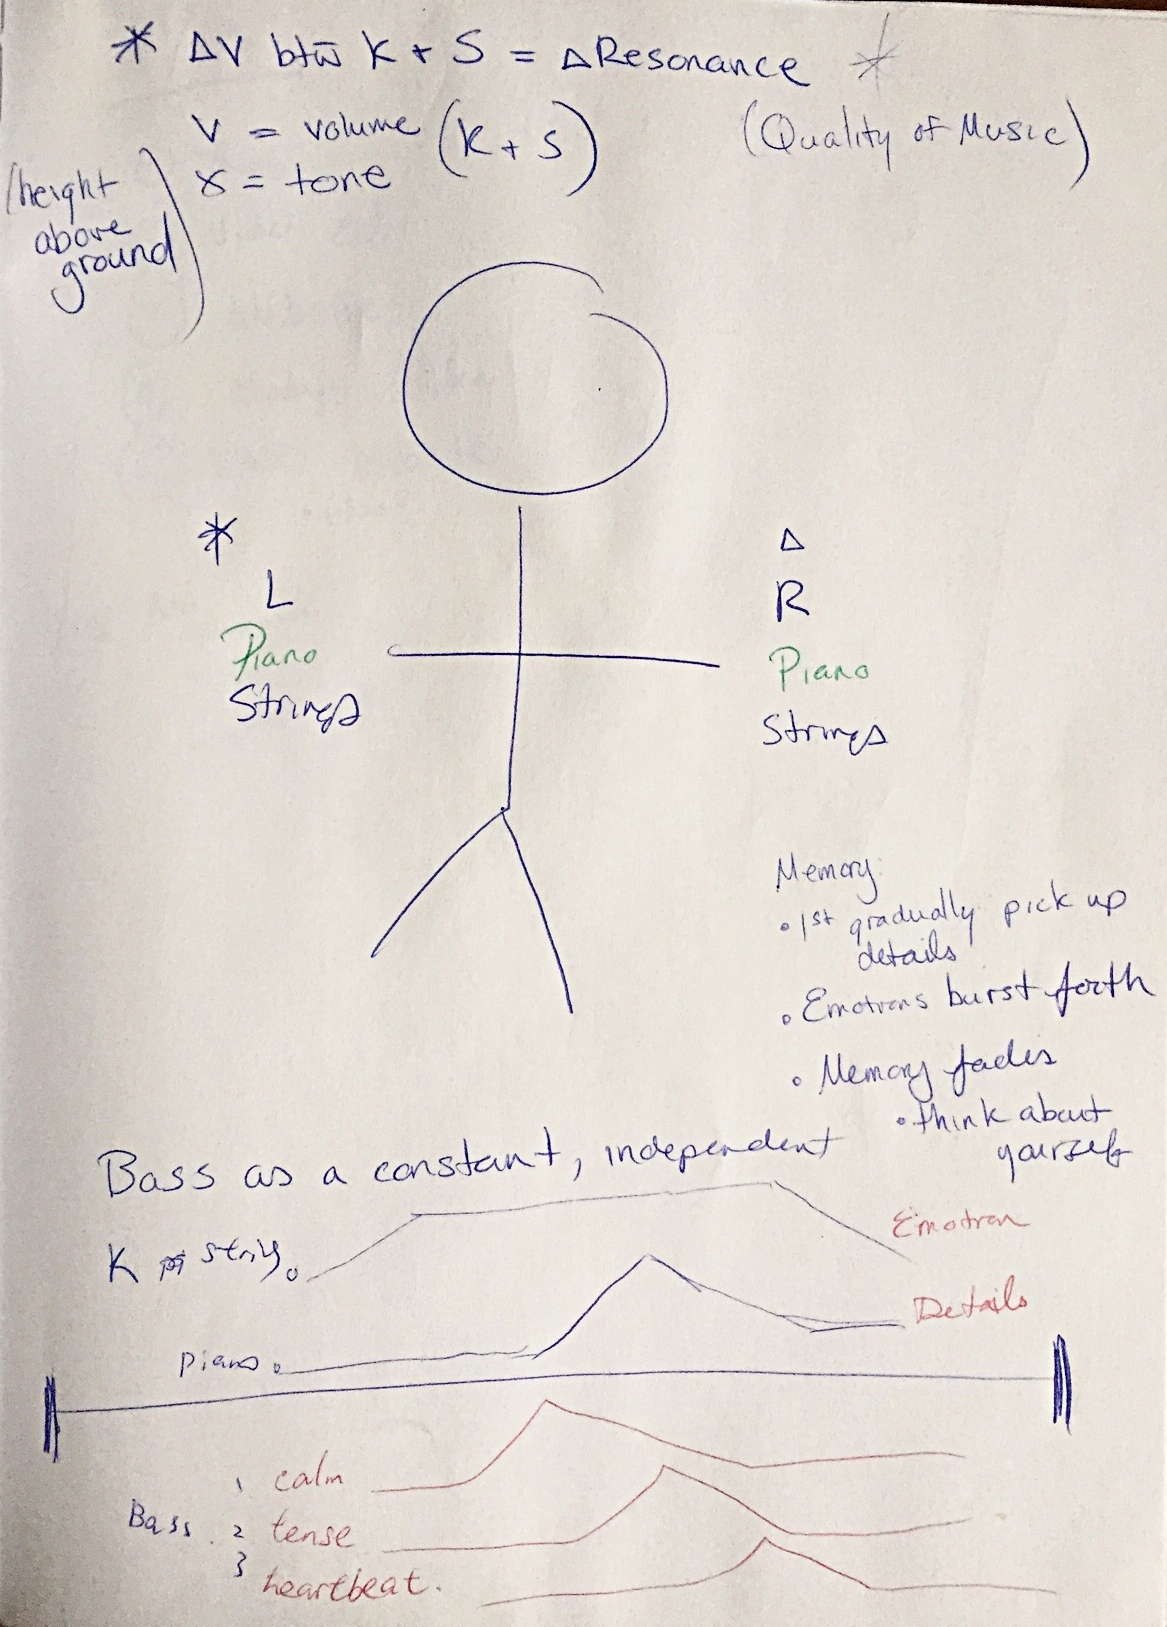 * ΔV btw K + S = ΔResonance *
V = volume (K + S) (Quality of Music)
x = tone
(height
above
ground)
*
L
Piano
Strings
Δ
R
Piano
Strings
Memory:
• 1st gradually pick up
details
• Emotions burst forth
• Memory fades
• think about
yourself
Bass as a constant, independent
K
Emotion
Details
Piano
Bass
1 calm
2 tense
3 heartbeat.